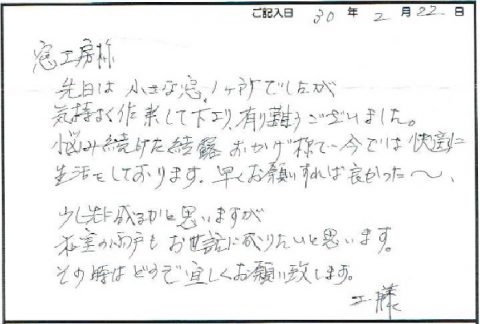 ご記入日 30 年 2 月 22 日
窓工房様
先日は小さな窓、1ヶ所でしたが
気持よく作業して下さり、有り難うございました。
悩み続けた結露 おかげ様で今では快適に
生活をしております。早くお願いすれば良かった〜、
少し先に成るかと思いますが
寝室の雨戸もお世話に成りたいと思います。
その時はどうぞ宜しくお願い致します。
工藤